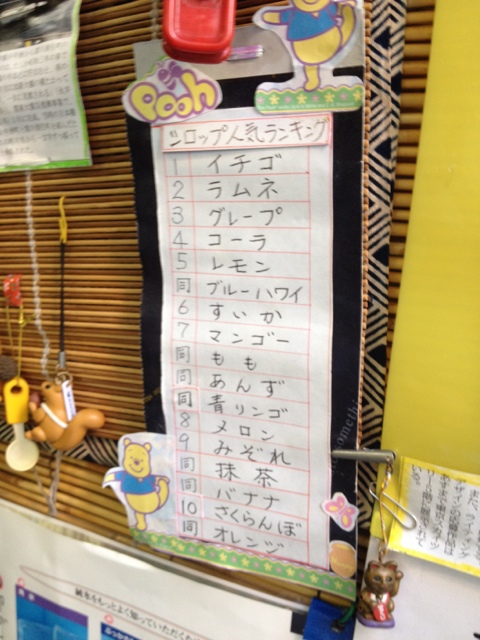 Pooh
シロップ人気ランキング
1 イチゴ
2 ラムネ
3 グレープ
4 コーラ
5 レモン
同 ブルーハワイ
6 すいか
7 マンゴー
同 もも
同 あんず
同 青リンゴ
8 メロン
9 みぞれ
同 抹茶
同 バナナ
10 さくらんぼ
同 オレンジ
純氷をもっとよく知っていただくた